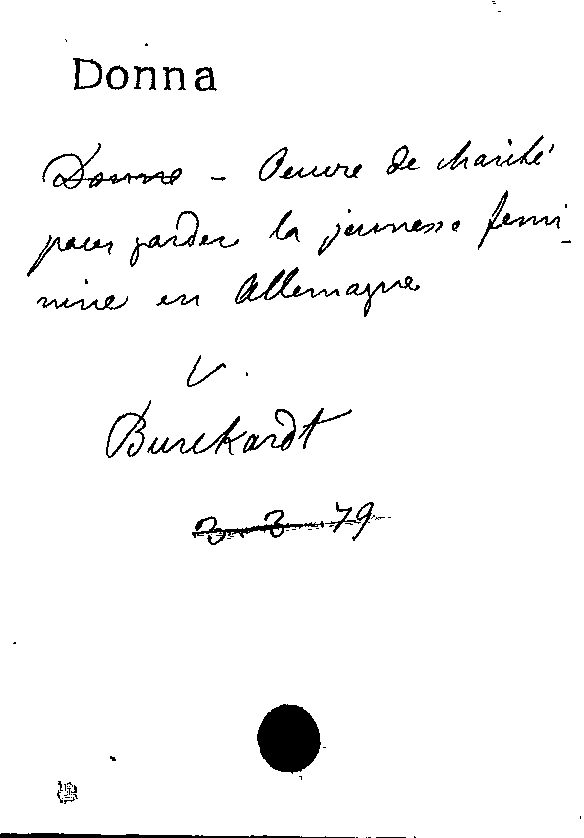 Donna
Donna - Oeuvre de charité
pour garder la jeunesse femi_
nine en Allemagne
V.
Burckardt
3. 3. 79